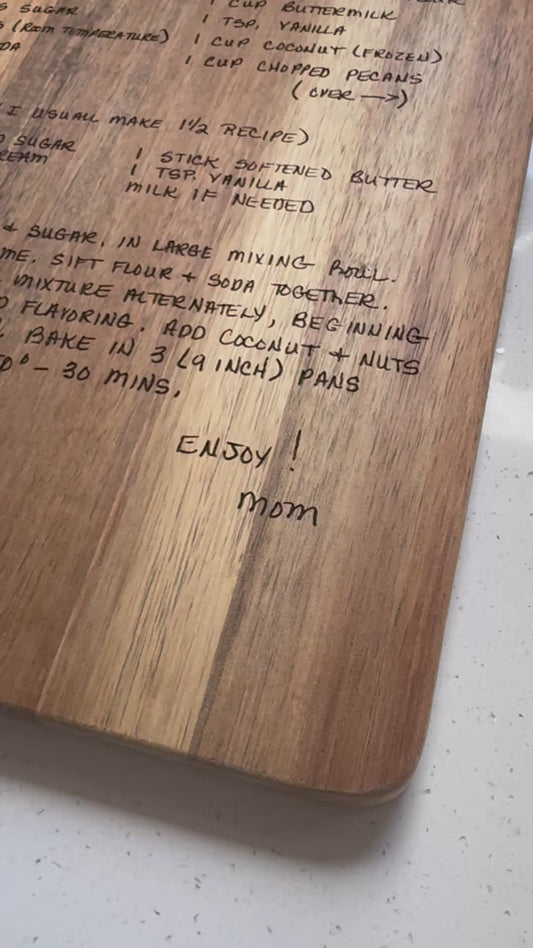 1 CUP BUTTERMILK
SUGAR
1 TSP. VANILLA
(ROOM TEMPERATURE)
1 CUP COCONUT (FROZEN)
1 CUP CHOPPED PECANS
(OVER →)
I USUALL MAKE 1½ RECIPE)
SUGAR
1 STICK SOFTENED BUTTER
1 TSP. VANILLA
MILK IF NEEDED
& SUGAR, IN LARGE MIXING BOWL.
SIFT FLOUR + SODA TOGETHER.
MIXTURE ALTERNATELY, BEGINNING
FLAVORING. ADD COCONUT + NUTS
BAKE IN 3 (9 INCH) PANS
0° - 30 MINS.
ENJOY!
MOM